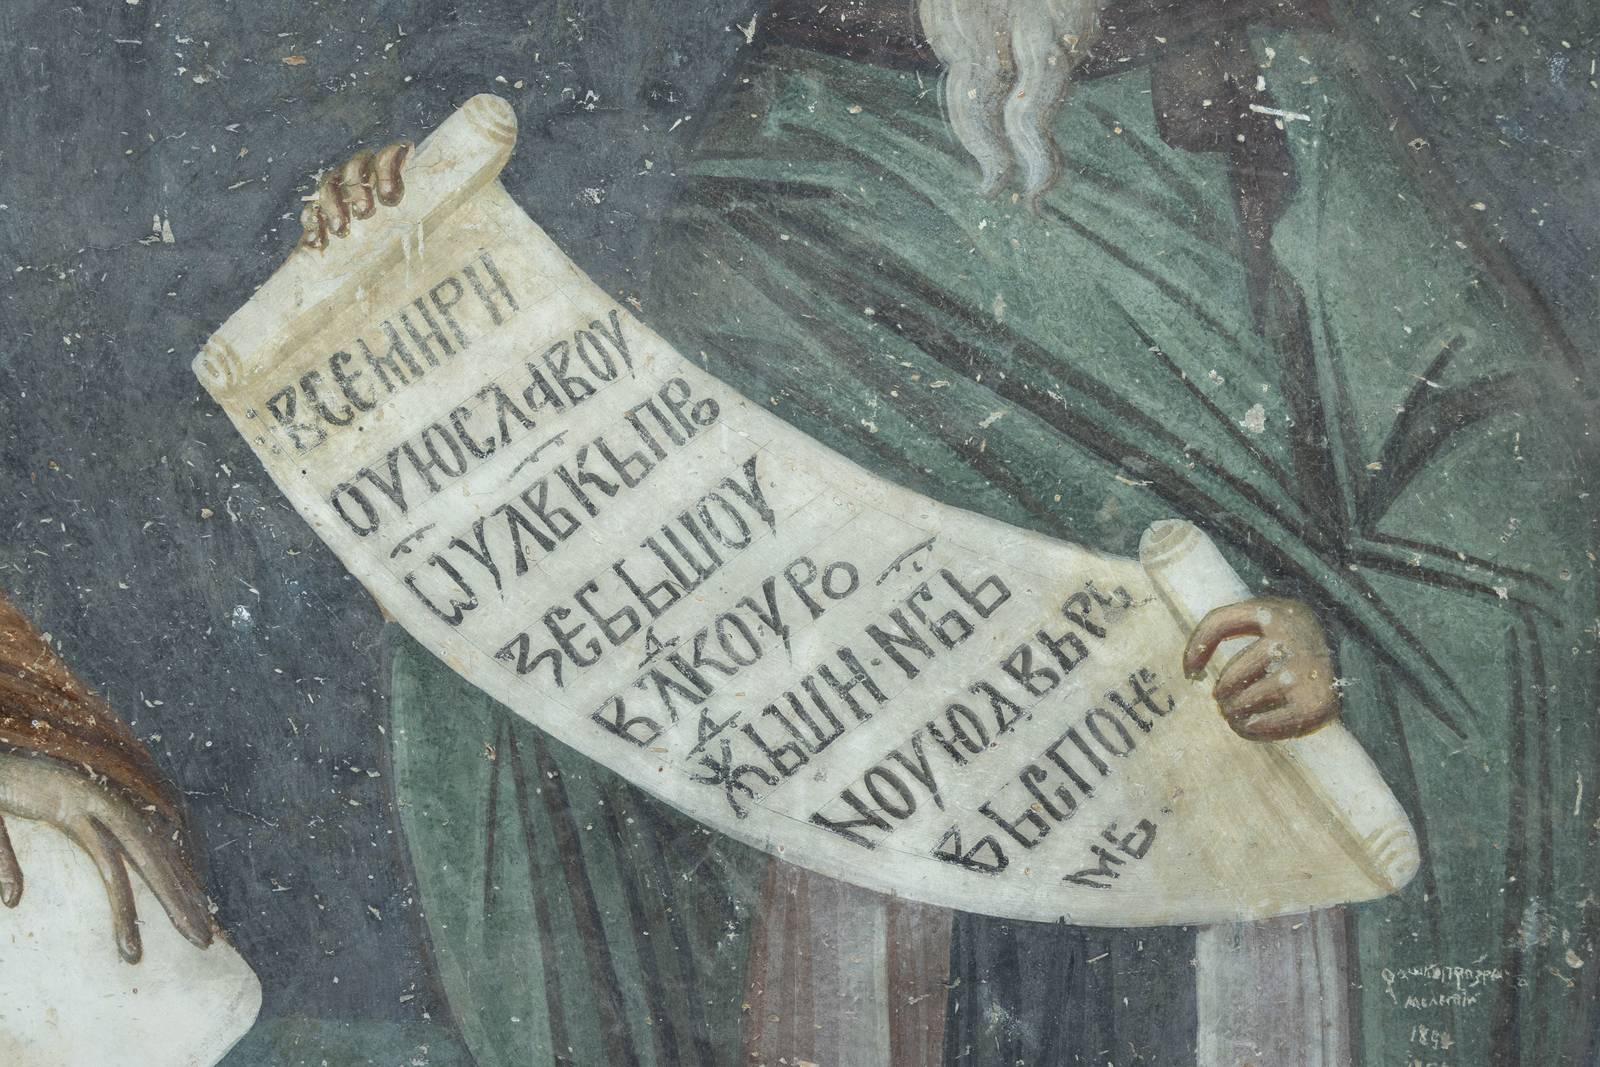 ВСЕМИРН
ОУЮСЛАВОУ
Ѿ УЛВКЬ ПРО
ЗЕБЬШОУ
ВЛⷣКОУ РО
Жⷣ ЬШИ · NБЬ
NОУЮ ДВЬРЬ
ВЬСПОИ
МЬ ·
мелетіи